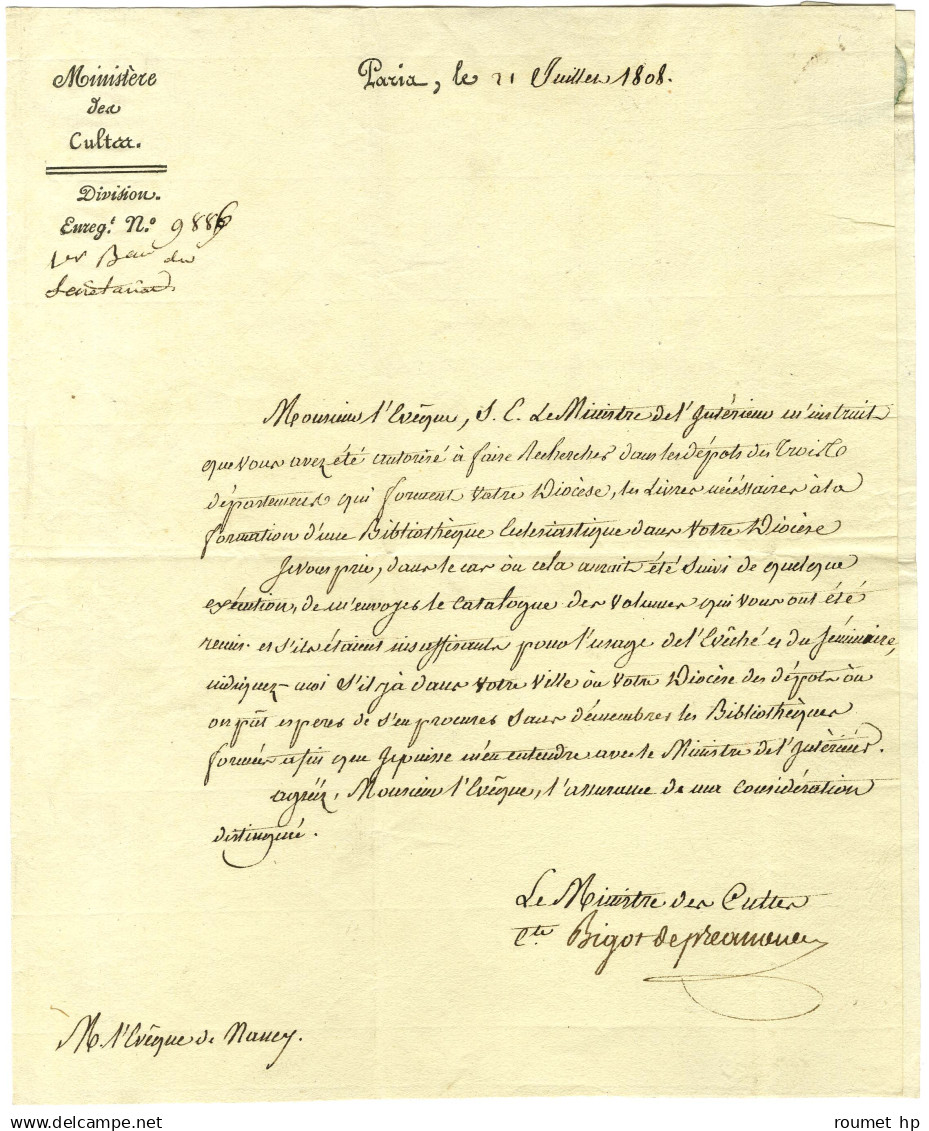 Ministère
des
Cultes.
Division.
Enreg.t N.o 9886
1er Beau du
Secrétariat
Paris, le 21 Juillet 1808.
Monsieur l'Evêque, S. E. Le Ministre de l'Intérieur m'instruit
que Vous avez été autorisé à faire Recherches dans les dépots des Trois
départemens qui forment Votre Diocèse, les Livres nécéssaires à la
formation d'une Bibliothèque Eclesiastique dans Votre Diocèse
Je Vous prie, dans le cas où cela aurait été suivi de quelque
exécution, de m'envoyer le Catalogue des Volumes qui Vous ont été
remis et s'ils étaient insuffisants pour l'usage de l'Evêché et du Séminaire,
indiquez-moi s'il y à dans Votre Ville ou Votre Diocèse des dépots où
on pût esperer de s'en procurer sans démembrer les Bibliothèques
formées afin que Je puisse m'en entendre avec le Ministre de l'Intérieur.
agréez, Monsieur l'Evêque, l'assurance de ma Considération
distinguée.
Le Ministre des Cultes
Cte Bigot de préameneu
M. l'Evêque de Nancy.
roumet hp